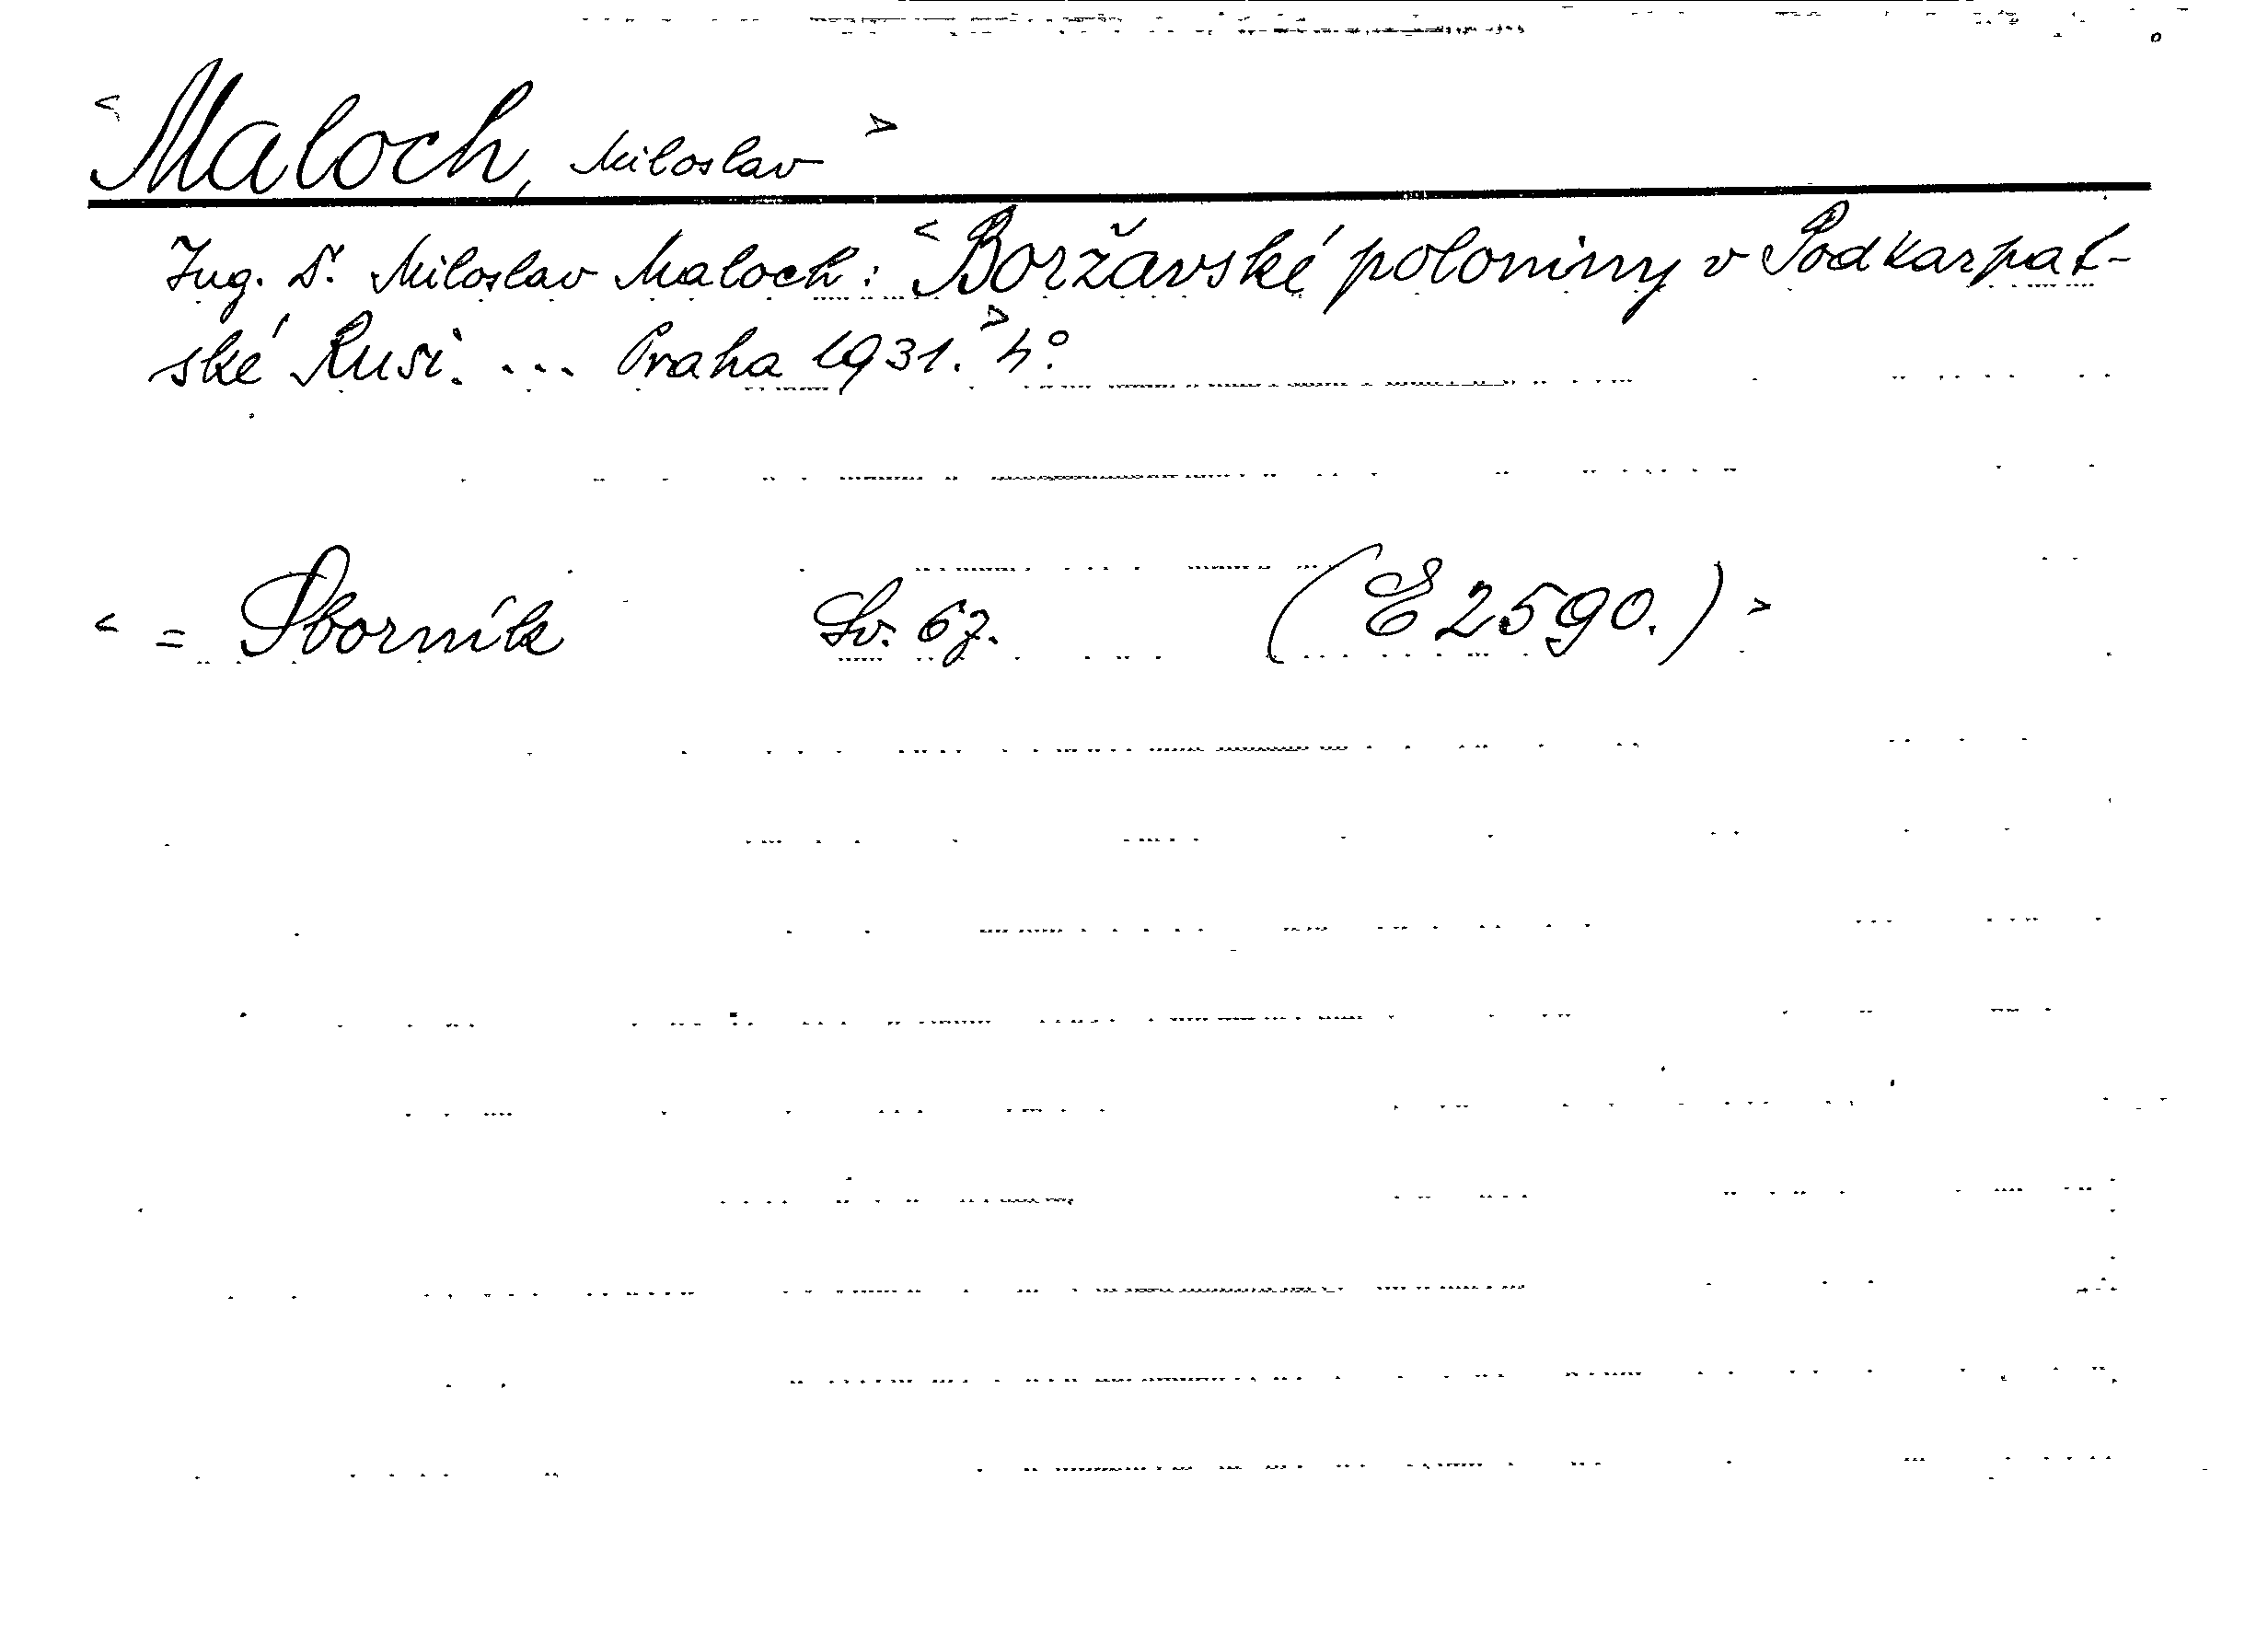 <Maloch, Miloslav>
Ing. Dr. Miloslav Maloch: <Boržavské poloniny v Podkarpat-
ské Rusi. ... Praha 1931.> 4°.
< = Sborník Sv. 67. (E 2590.) >